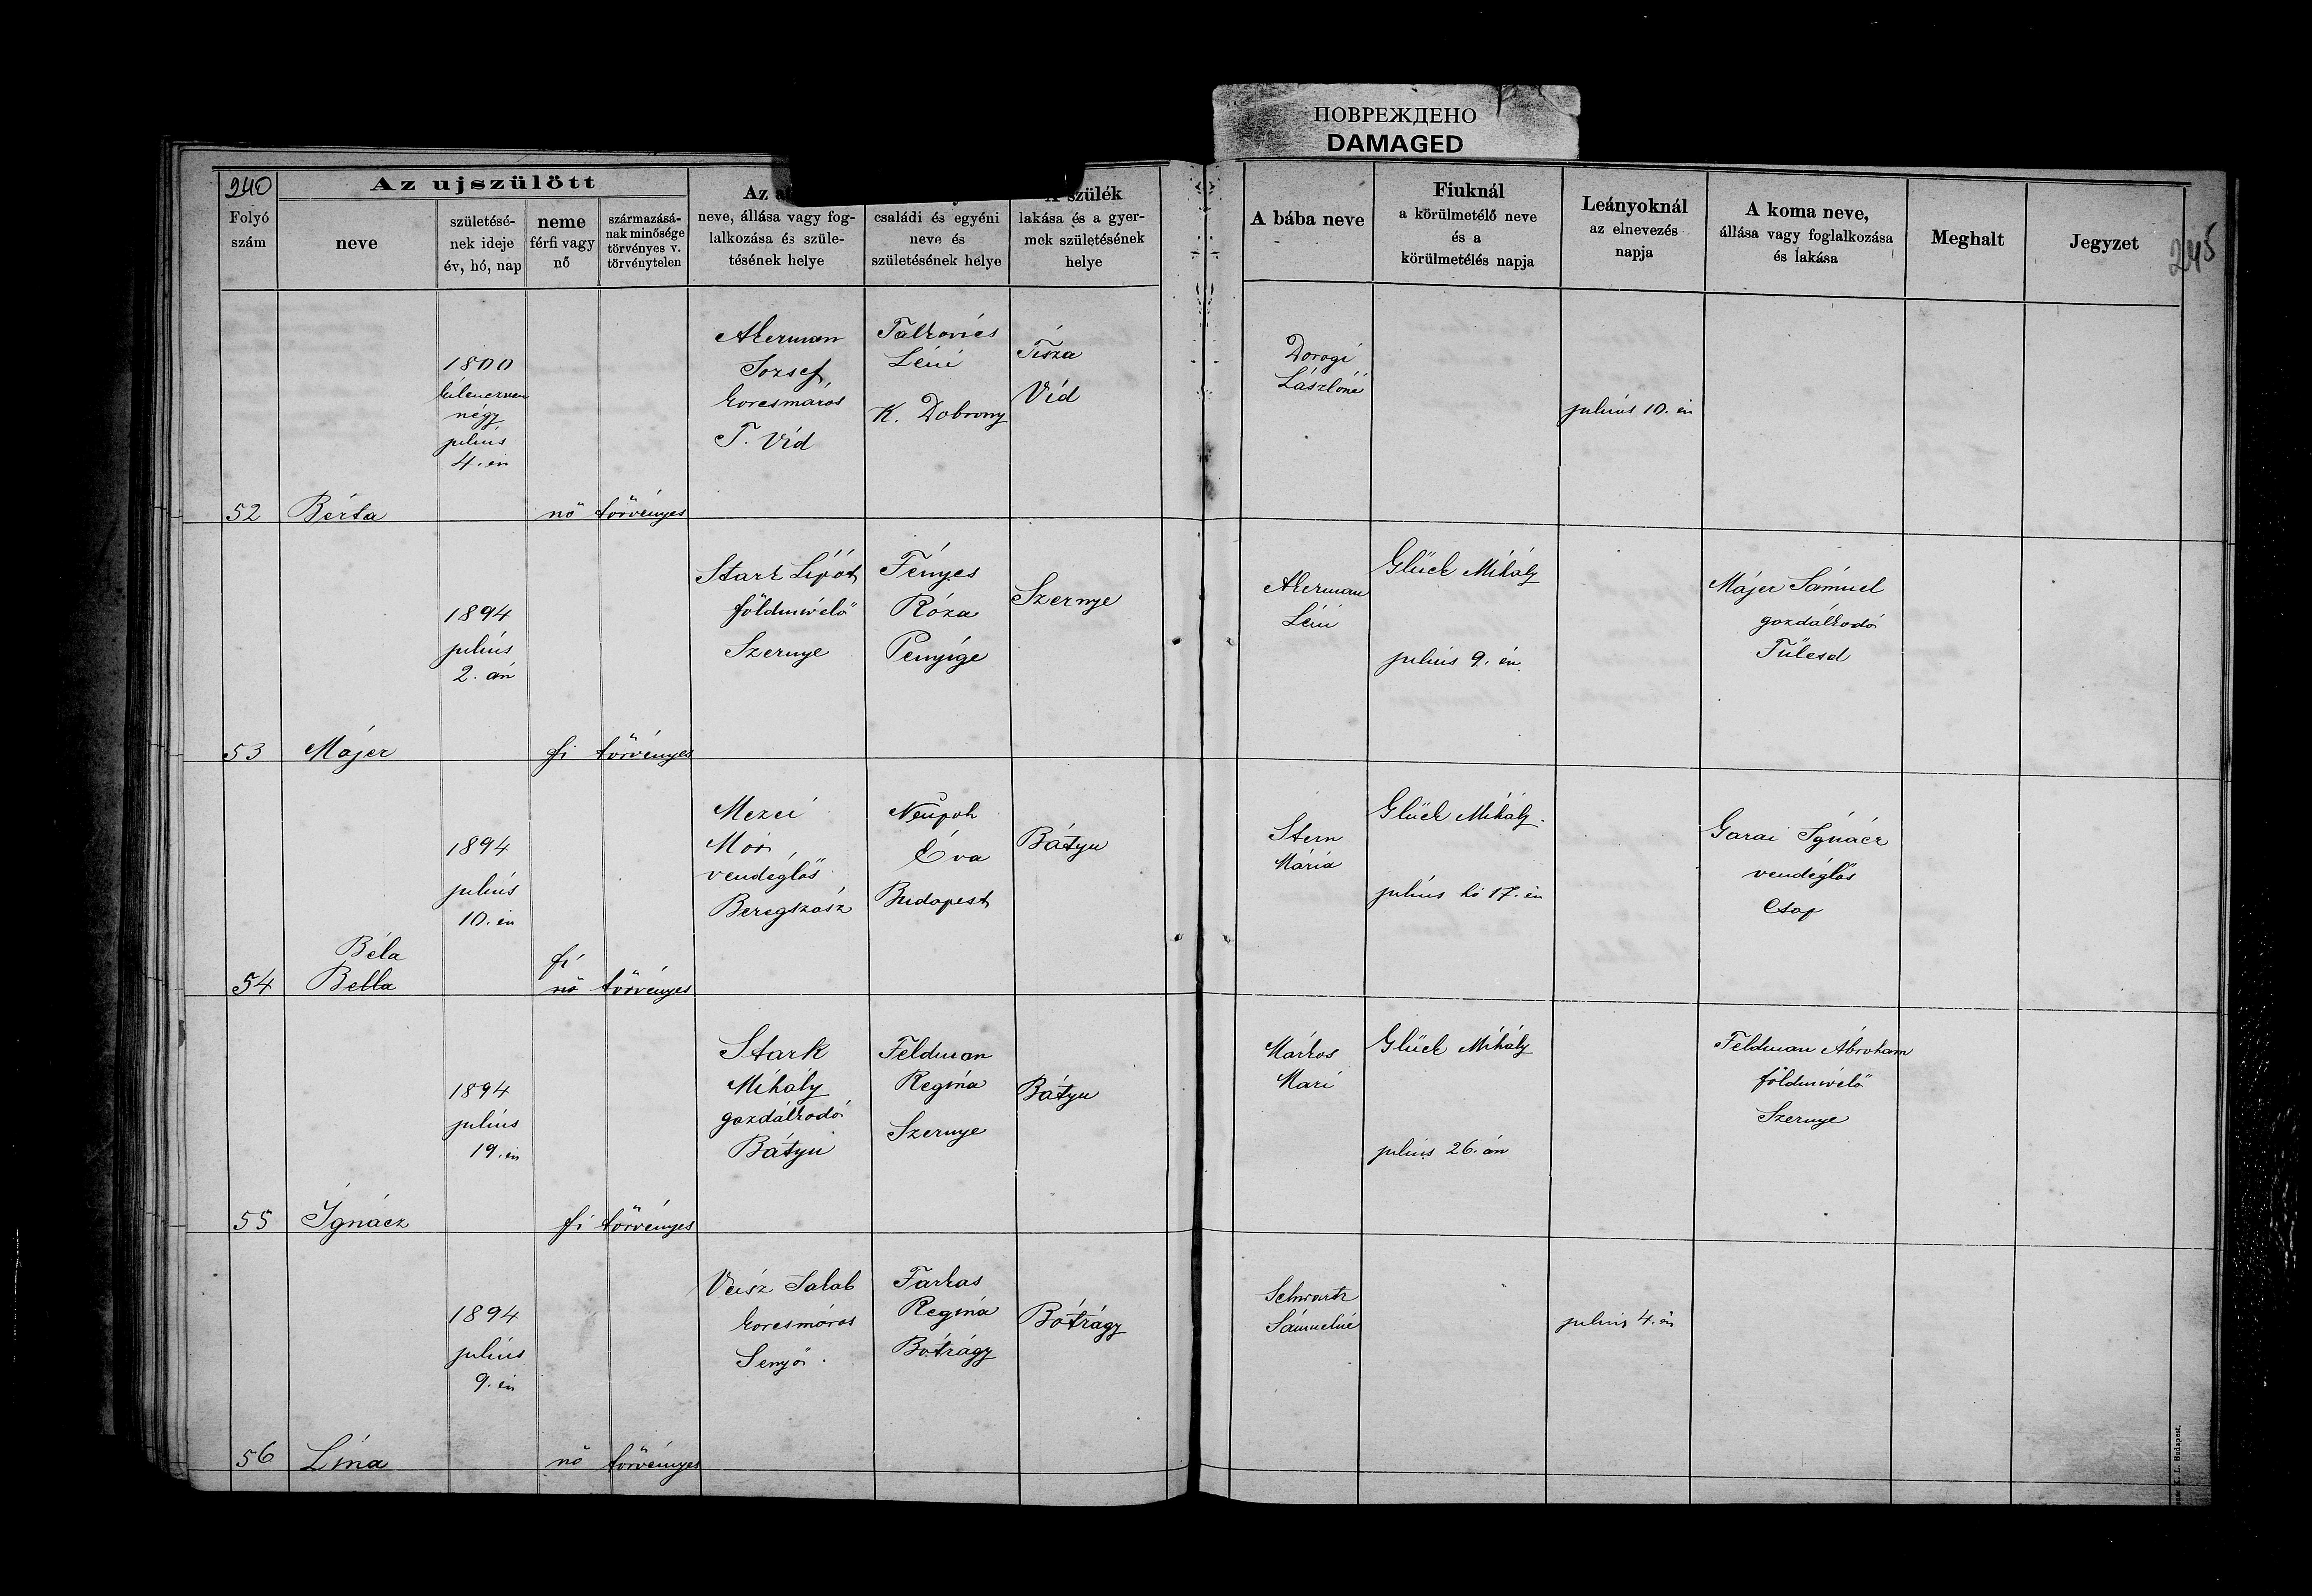 ПОВРЕЖДЕНО
DAMAGED
240
Az ujszülött
Folyó
szám
neve
születésé-
nek ideje
év, hó, nap
neme
férfi vagy
nő
származásá-
nak minősége
törvényes v.
törvénytelen
Az
neve, állása vagy fog-
lalkozása és szüle-
tésének helye
családi és egyéni
neve és
születésének helye
A szülék
lakása és a gyer-
mek születésének
helye
A bába neve
Fiuknál
a körülmetélő neve
és a
körülmetélés napja
Leányoknál
az elnevezés
napja
A koma neve,
állása vagy foglalkozása
és lakása
Meghalt
Jegyzet
245
52
Bérta
1800
kilenczven
négy
julius
4. én
nő
törvényes
Akerman
Jozsef
korcsmáros
T. Vid
Falkovics
Léni
K. Dobrony
Tisza
Vid
Dorogi
Lászlóné
julius 10. én
53
Májer
1894
julius
2. án
fi
törvényes
Stark Lipót
földmivelő
Szernye
Fényes
Róza
Penyige
Szernye
Akerman
Léni
Glück Mihály
julius 9. én.
Májer Sámuel
gazdálkodó
Fülesd
54
Béla
Bella
1894
julius
10. én
fi
nő
törvényes
Mezei
Mór,
vendéglős
Beregszász
Éva
Budapest
Bátyu
Stern
Mária
Glück Mihály.
julius hó 17. én
Garai Ignácz
vendéglős
Csap
55
Ignácz
1894
julius
19. én
fi
törvényes
Stark
Mihály
gazdálkodó
Bátyu
Feldman
Regina
Szernye
Bátyu
Márkos
Mari
Glück Mihály
julius 26. án
Feldman Ábrohám
földmivelő
Szernye
56
Lina
1894
julius
9. én
nő
törvényes
Veisz Jakab
korcsmáros
Senyő.
Farkas
Regina
Bótrágy
Bótrágy
Schwartz
Sámuelné
julius 4. én
K. L. Budapest.